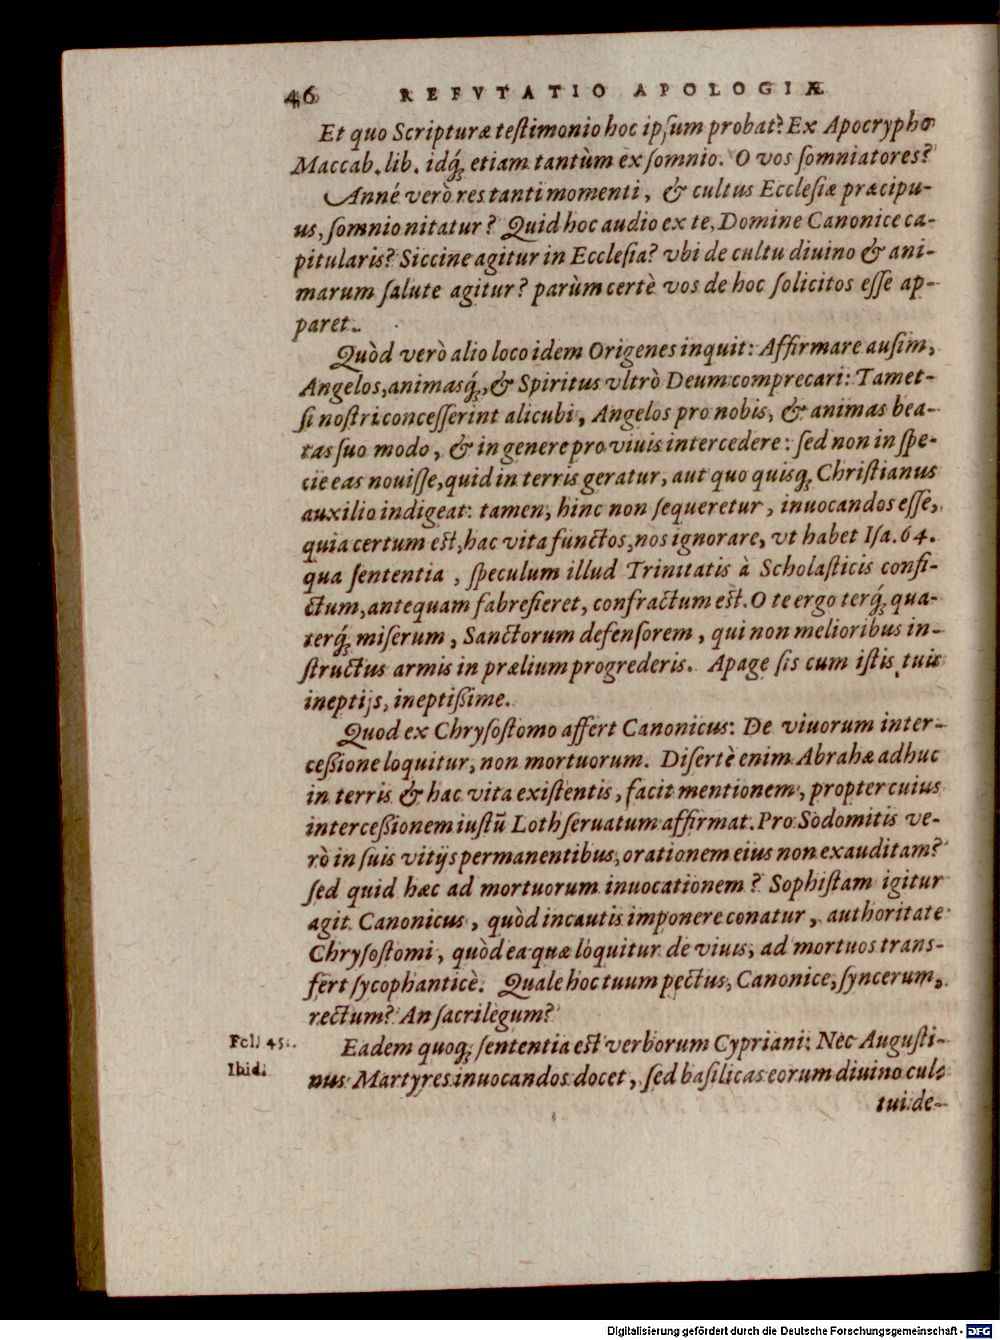 46 REFVTATIO APOLOGIÆ
Et quo Scripturæ teſtimonio hoc ipſum probat? Ex Apocrypho
Maccab. lib. idq́ꝫ etiam tantùm ex ſomnio. O vos ſomniatores?
Anné verò res tanti momenti, & cultus Eccleſiæ præcipu-
us, ſomnio nitatur? Quid hoc audio ex te, Domine Canonice ca-
pitularis? Siccine agitur in Eccleſia? vbi de cultu diuino & ani-
marum ſalute agitur? parùm certè vos de hoc ſolicitos eſſe ap-
paret.
Quòd verò alio loco idem Origenes inquit: Affirmare auſim,
Angelos, animasq́ꝫ, & Spiritus vltrò Deum comprecari: Tamet-
ſi noſtri conceſſerint alicubi, Angelos pro nobis, & animas bea-
tas ſuo modo, & in genere pro viuis intercedere: ſed non in ſpe-
cie eas nouiſſe, quid in terris geratur, aut quo quisqꝫ Chriſtianus
auxilio indigeat: tamen, hinc non ſequeretur, inuocandos eſſe,
quia certum eſt, hac vita functos, nos ignorare, vt habet Iſa. 64.
qua ſententia, ſpeculum illud Trinitatis à Scholaſticis confi-
ctum, antequam fabrefieret, confractum eſt. O te ergo terq́ꝫ qua-
terq́ꝫ miſerum, Sanctorum defenſorem, qui non melioribus in-
ſtructus armis in prælium progrederis. Apage ſis cum iſtis tuis
ineptijs, ineptißime.
Quod ex Chryſoſtomo affert Canonicus: De viuorum inter-
ceßione loquitur, non mortuorum. Diſertè enim Abrahæ adhuc
in terris & hac vita exiſtentis, facit mentionem, propter cuius
interceßionem iuſtū Loth ſeruatum affirmat. Pro Sodomitis ve-
rò in ſuis vitijs permanentibus, orationem eius non exauditam?
ſed quid hæc ad mortuorum inuocationem? Sophiſtam igitur
agit Canonicus, quòd incautis imponere conatur, authoritate
Chryſoſtomi, quòd ea quæ loquitur de viuis, ad mortuos trans-
fert ſycophanticè. Quale hoc tuum pectus, Canonice, ſyncerum,
rectum? An ſacrilegum?
Fol. 45. Eadem quoqꝫ ſententia eſt verborum Cypriani: Nec Auguſti-
Ibid. nus Martyres inuocandos docet, ſed baſilicas eorum diuino cul-
tui de-
Digitalisierung gefördert durch die Deutsche Forschungsgemeinschaft - DFG